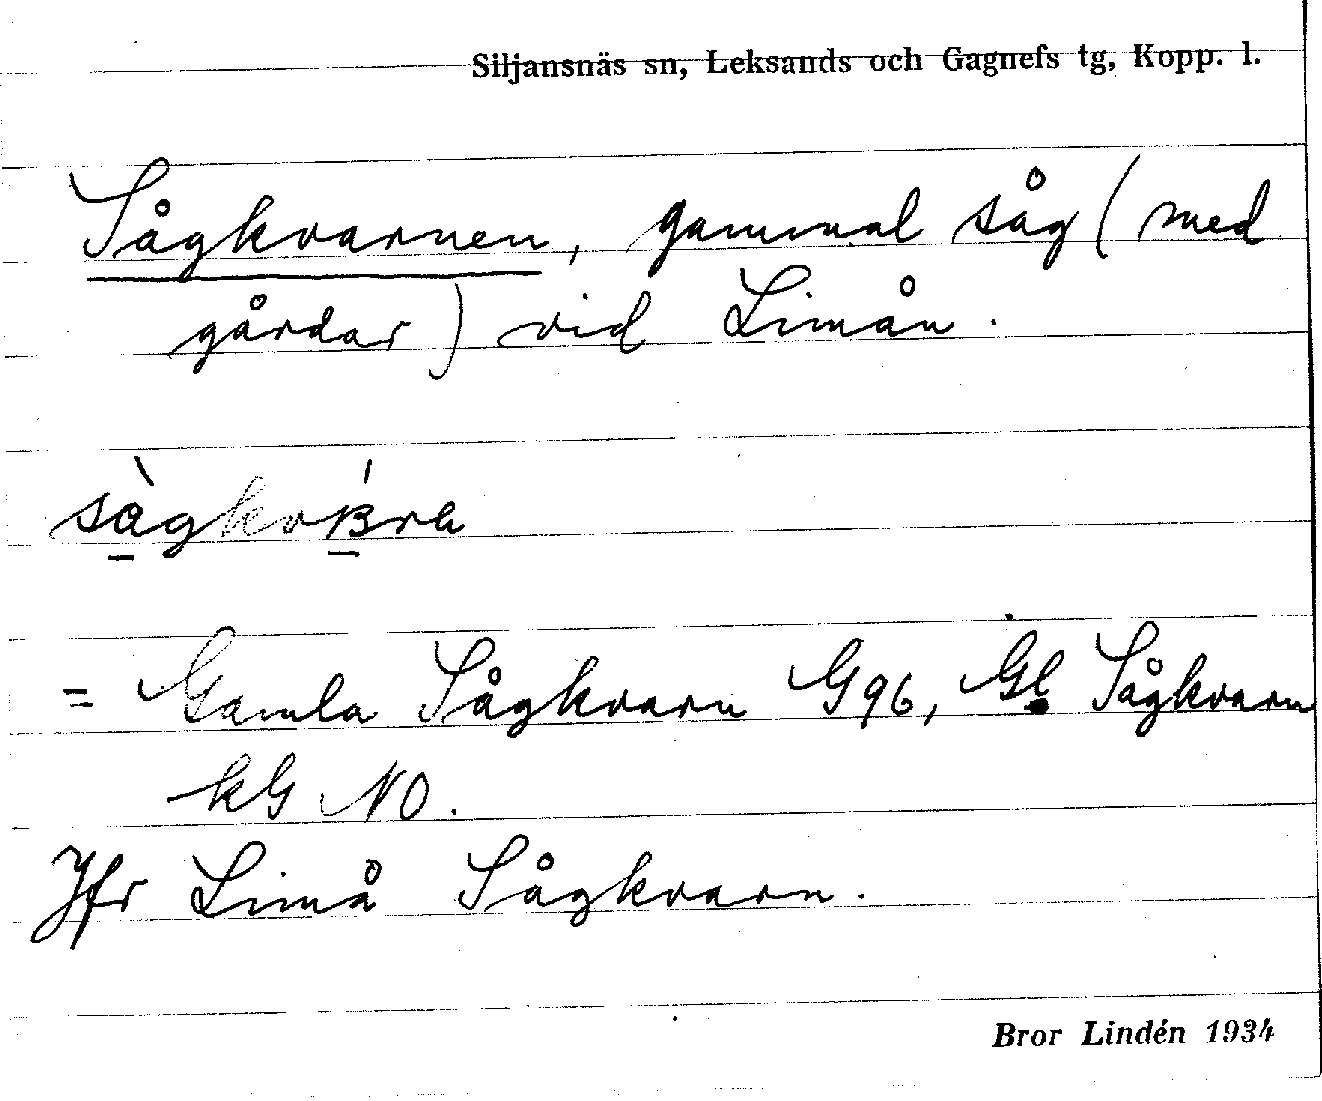 Siljansnäs sn, Leksands och Gagnefs tg, Kopp. l.
Sågkvarnen, gammal såg (med
gårdar) vid Limån.
= Gamla Sågkvarn G96, Gl Sågkvarn
kG NO.
Jfr Limå Sågkvarn.
Bror Lindén 1934